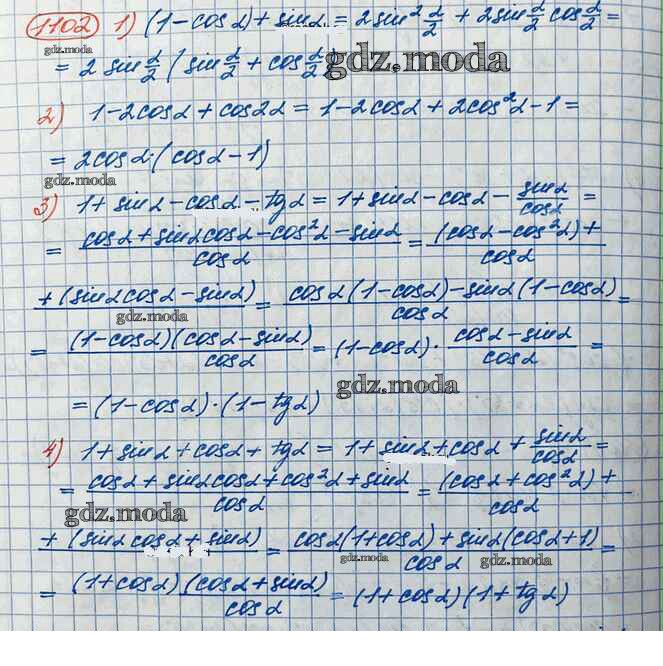 1102 1) (1-cosα)+sinα = 2sin²α/2 + 2sinα/2 cosα/2 =
= 2 sinα/2 (sinα/2 + cosα/2)
gdz.moda
2) 1-2cosα+cos2α = 1-2cosα+2cos²α-1 =
= 2cosα·(cosα-1)
gdz.moda
3) 1+sinα-cosα-tgα = 1+sinα-cosα - sinα/cosα =
= (cosα+sinαcosα-cos²α-sinα)/cosα = (cosα-cos²α)+/cosα
+(sinαcosα-sinα)/ = (cosα(1-cosα)-sinα(1-cosα))/cosα =
gdz.moda
= (1-cosα)(cosα-sinα)/cosα = (1-cosα)· (cosα-sinα)/cosα =
gdz.moda
= (1-cosα)·(1-tgα)
4) 1+sinα+cosα+tgα = 1+sinα+cosα + sinα/cosα =
= (cosα+sinαcosα+cos²α+sinα)/cosα = (cosα+cos²α)+/cosα
gdz.moda
+(sinαcosα+sinα)/ = (cosα(1+cosα)+sinα(cosα+1))/cosα =
gdz.moda gdz.moda
= (1+cosα)(cosα+sinα)/cosα = (1+cosα)(1+tgα)